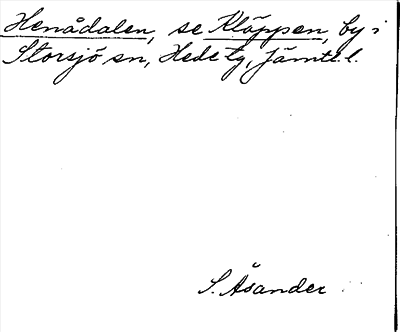 Henådalen, se Kläppen, by i
Storsjö sn, Hede tg, Jämtl. l.
S. Åsander